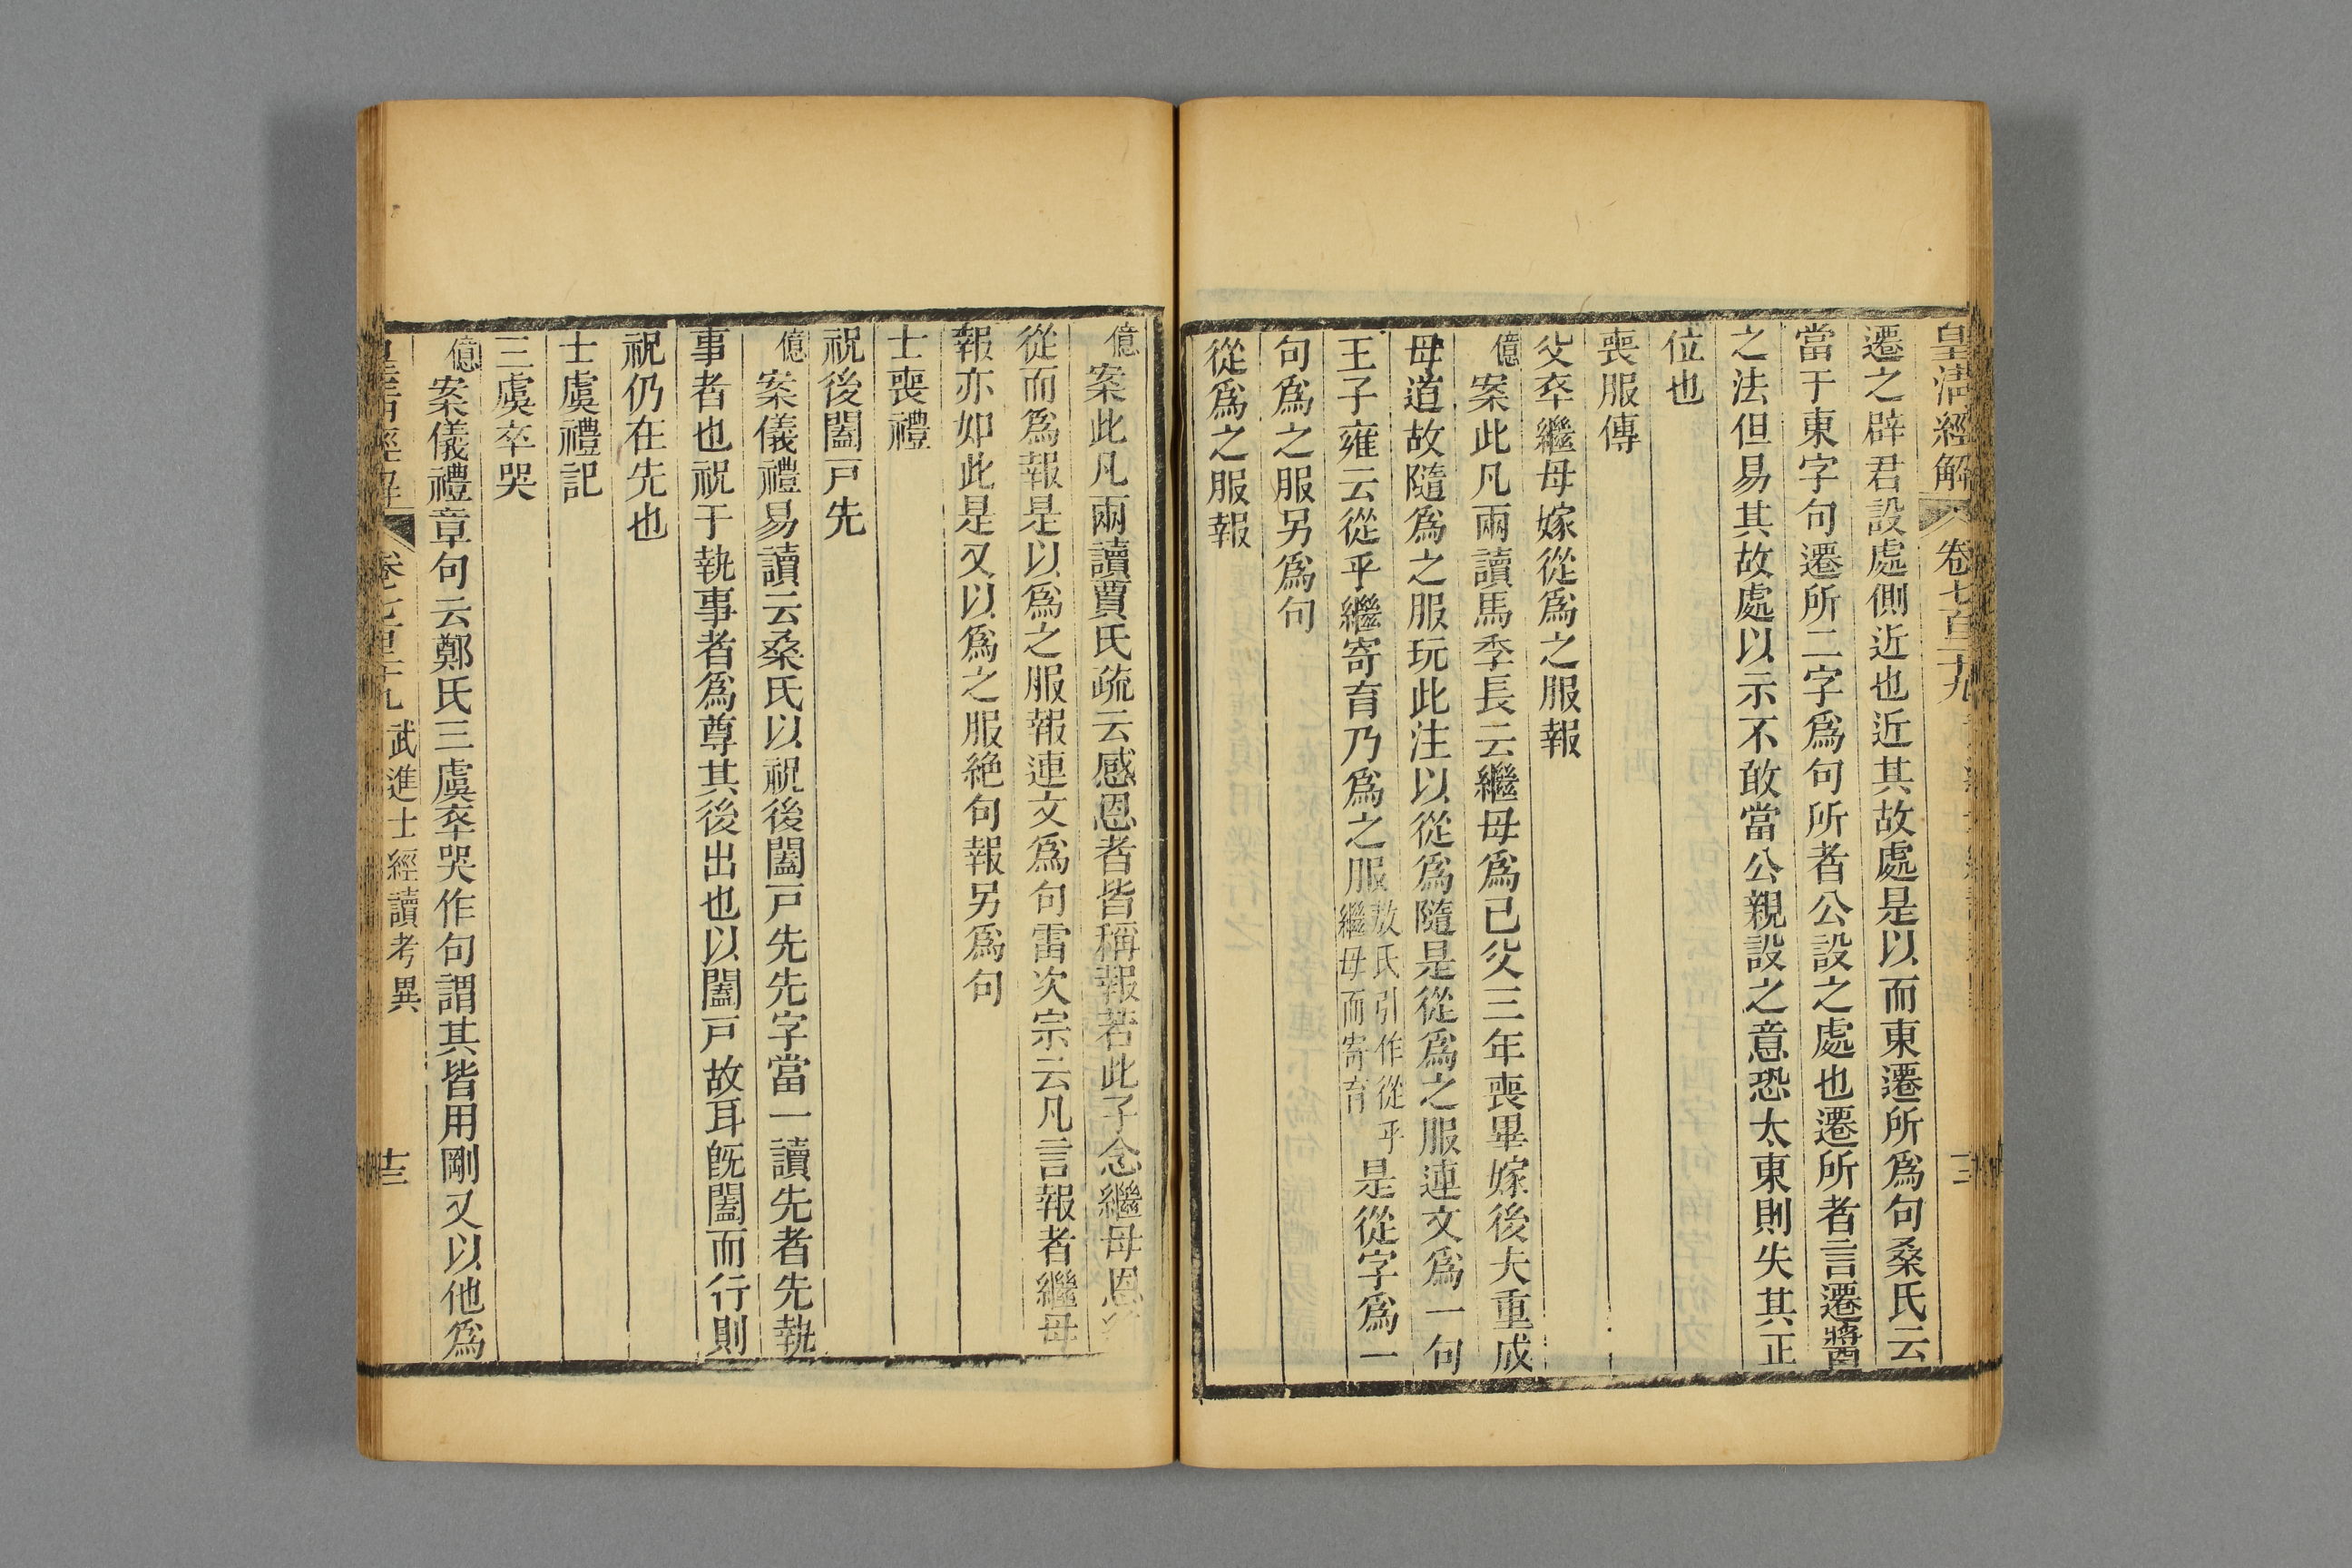 皇清經解 卷七百二十九
遷之辟君設處側近也近其故處是以而東遷所爲句桑氏云
當于東字句遷所二字爲句所者公設之處也遷所者言遷醬
之法但易其故處以示不敢當公親設之意恐太東則失其正
位也
喪服傳
父卒繼母嫁從爲之服報
億案此凡兩讀馬季長云繼母爲已父三年喪畢嫁後夫重成
母道故隨爲之服玩此注以從爲隨是從爲之服連文爲一句
王子雍云從乎繼寄育乃爲之服敖氏引作從乎繼母而寄育是從字爲一
句爲之服另爲句
從爲之服報
億案此凡兩讀賈氏疏云感恩者皆稱報若此子念繼母恩
從而爲報是以爲之服報連文爲句雷次宗云凡言報者繼母
報亦如此是又以爲之服絶句報另爲句
士喪禮
祝後闔戸先
億案儀禮易讀云桑氏以祝後闔戸先先字當一讀先者先執
事者也祝于執事者爲尊其後出也以闔戸故耳旣闔而行則
祝仍在先也
士虞禮記
三虞卒哭
億案儀禮章句云鄭氏三虞卒哭作句謂其皆用剛又以他爲
武進士經讀考異 十三